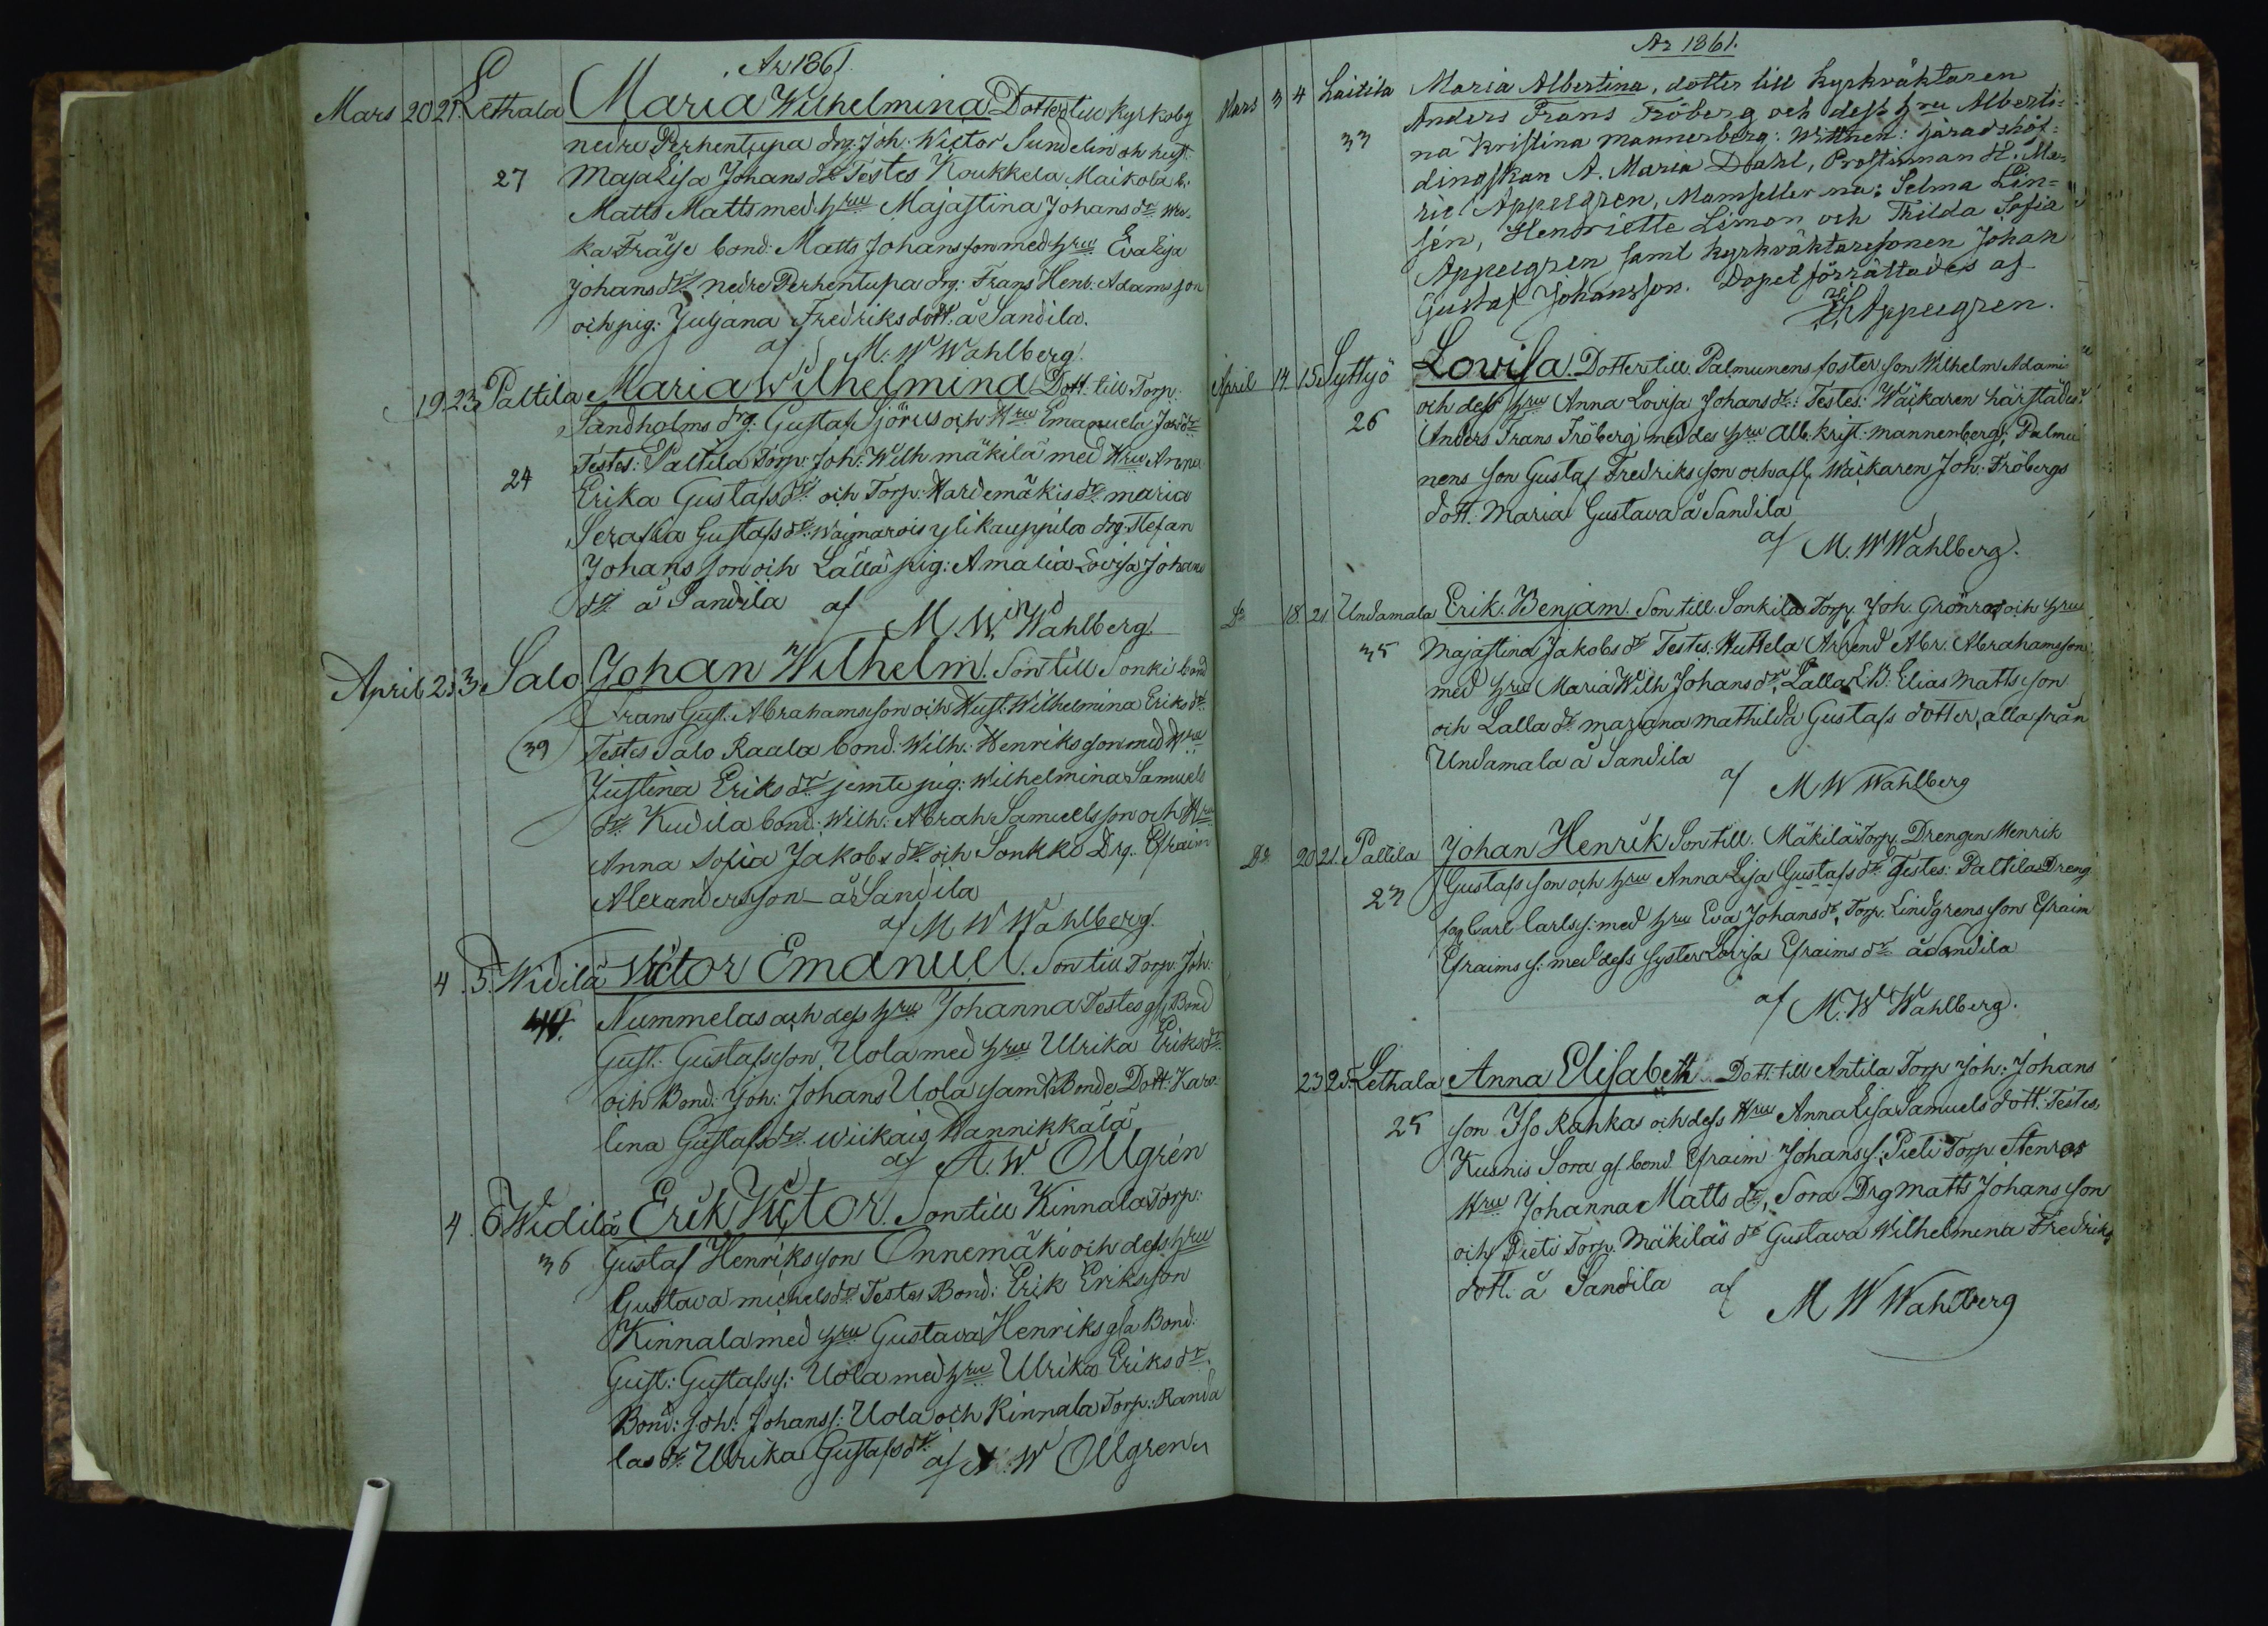 Ar 1861.
Mars 20 21. Lethala Maria Wilhelmina Dotter till Kyrkoby
nedre Perhentupa drg: Joh: Wictor Sundelin och hust:
27 Maja Lisa Johans dr Testes Koukkela Maikola b.
Matts Matts med hru Majastina Johans dr
ka Frälse bond: Matts Johansson med hru Eva Lisa
Johans dr nedre Perhentupa drg: Frans Henr. Adamsson
och pig: Juljana Fredriks dott: å Sandila.
af M: W Wahlberg.
19 23 Paltila Maria Wilhelmina Dott. till Torp.
Sandholms drg: Gustaf Sjörus och Hru Emanuela Joh dr
Testes: Paltila Torp: Joh: Wilh mäkilä med Hru Anna
24 Erika Gustafs dr och Torp: Hardemäkis dr maria
Serafia Gustafs dr Waimarois ylikauppila drg Stefan
Johansson och Lälla pig: Amalia Lovisa Johans
dr å Sandila af
M. W. Wahlberg.
April 2 3 Salo Johan Wilhelm. Son till Sonki bond
Frans Gust. Abrahamsson och Hust. Wilhelmina Eriks dr
39 Testes Salo Raala bond: Wilh: Henriksson med Hru
Justina Eriks dr jemte pig: Wilhelmina Samuels
dr Kudila bond: Wilh: Abrah Samuelsson och Hru
Anna Sofia Jakobs dr och Sonkki Drg. Efraim
Alexandersson å Sandila
af M W Wahlberg.
4. 5. Widilä Victor Emanuel. Son till Torp: Joh:
Nummelas och dess hru Johanna Testes gl: Bond
Gust: Gustafsson Uola med hru Ulrika Eriks dr
och Bond: Joh: Johans Uola samt Bonde Dott: Karo-
lina Gustafs dr Wiikais Wannikkälä
af A. W. Ollgrén
4. 6 Widilä Erik Victor. Son till Kinnala Torp:
36 Gustaf Henriksson Onnemäki och dess hru
Gustava michels dr Testes Bond: Erik Eriksson
Kinnala med hru Gustava Henriks gla Bond:
Gust: Gustafs s: Uola med hru Ulrika Eriks dr
Bond: Joh: Johans s: Uola och Kinnala Torp: Randa
las dr Ulrika Gustafs dr
af A. W Ollgren
Ar 1861.
Mars 3 4 Laitila Maria Albertina, dotter till kyrkväktaren
Anders Frans Fröberg och dess hru Alberti=
33 na Kristina Mannerberg: Wittnen: häradshöf=
dingskan A. Maria Dahl, Prostinnan H. Ma=
rie Appelgren, Mamsellerna: Selma Lin=
sén, Henriette Limon och Thilda Sofia
Appelgren samt kyrkväktaresonen Johan
Gustaf Johansson. Dopet förrättades af
Appelgren.
April 14 15 Syttyö Lovisa. Dotter till Palmunens foster son Wilhelm Adami
och dess hru Anna Lovisa Johans dr: Testes: Wäkaren härstädes
26 Anders Frans Fröberg med des hru Alb: Krist: mannenberg, Palmu
nens Son Gustaf Fredriksson och afl. Wäkaren Joh: Fröbergs
dott: Maria Gustava å Sandila
af M. W Wahlberg.
Do 18 21 Undamala Erik. Benjam. Son till Sonkila Torp. Joh. Grönros och hru
35 Majastina Jakobs dr Testes. Huttela Arrend Abr. Abrahamsson
med hru Maria Wilh Johans dr, Lalla L B: Elias Matts son
och Lalla dr marjana mathilda Gustafs dotter, alla från
Undamala å Sandila
af M W Wahlberg
Do 20 21. Paltila Johan Henrik Son till. Mäkilä Torp. Drengen Henrik
Gustafsson och hru Anna Lisa Gustafs dr Testes: Paltila Dreng
23 fog Carl Carls s: med hru Eva Johans dr, Torp. Lindgrens son Efraim
Efraims s: med dess syster Lovisa Efraims dr å Sandila
af M. W Wahlberg.
23 25. Lethala Anna Elisabeth Dott. till Antila Torp Joh: Johans
25 son Iso Rahkas och dess Hru Anna Lisa Samuels dott. Testes,
Kusnis Sora gl. bond Efraim Johans s: Pieti Torp Stenros
Hru Johanna Matts dr, Sora Drg Matts Johansson
och Pieti Torp. Mäkiläs dr Gustava Wilhelmina Fredriks
dott. å Sandila af
M W Wahlberg